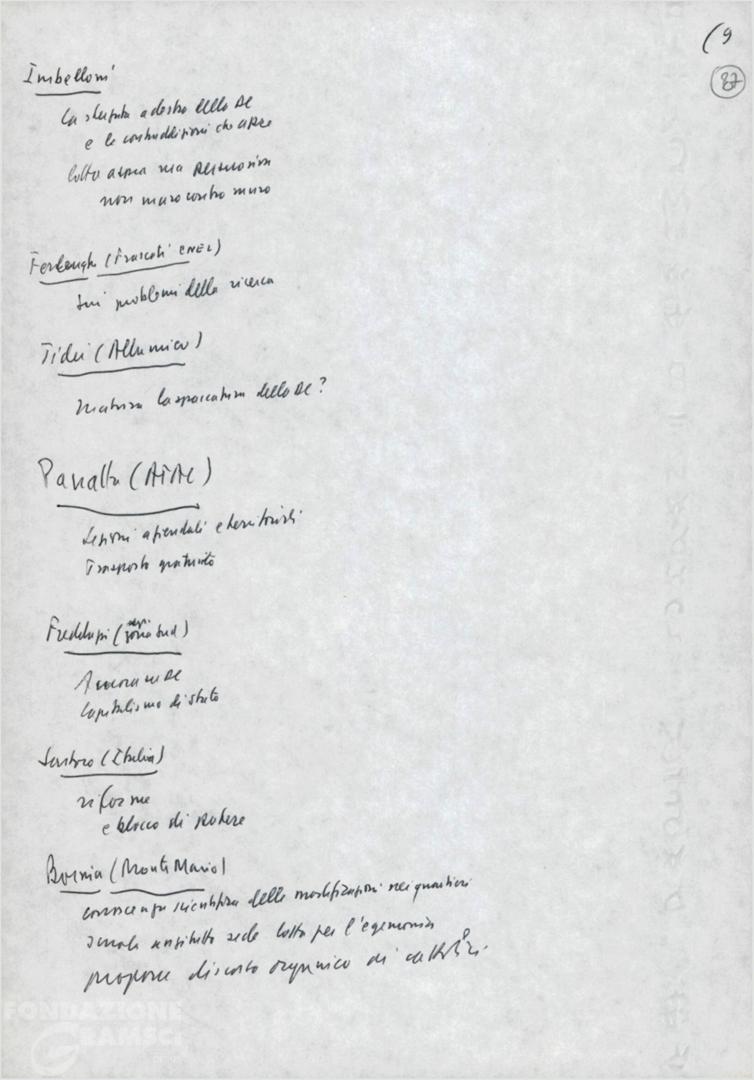 (9
87
Imbelloni
la sterzata a destra della DC
e le contraddizioni che apre
lotta aspra ma
non muro contro muro
(Frascati CNEN)
sui problemi della ricerca
Tidei (Allumiere)
la spaccatura della DC?
Panatta (ATAC)
Sezioni aziendali e territoriali
Trasporto gratuito
Freddupi (zona sud)
Ancora su DC
Capitalismo di stato
(Italia)
riforme
e blocco di potere
Borgia (Monte Mario)
conoscenza scientifica delle modificazioni nei quartieri
scuola anzitutto sede lotta per l'egemonia
proporre discorso organico ai cattolici
FONDAZIONE
GRAMSCI